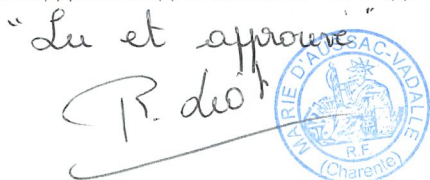 "Lu et approuvé"
P. Liôt
MAIRIE D'AUSSAC-VADALLE
R.F
(Charente)